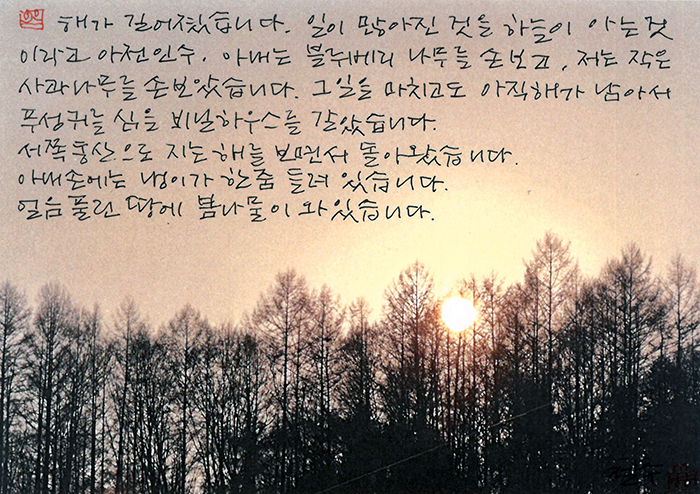 해가 길어졌습니다. 일이 많아진 것을 하늘이 아는 것
이라고 아전인수. 아내는 블루베리 나무를 손보고, 저는 작은
사과나무를 손보았습니다. 그일을 마치고도 아직 해가 남아서
푸성귀를 심을 비닐하우스를 갈았습니다.
서쪽 동산으로 지는 해를 보면서 돌아왔습니다.
아내손에는 냉이가 한줌 들려 있습니다.
얼음 풀린 땅에 봄나물이 와있습니다.